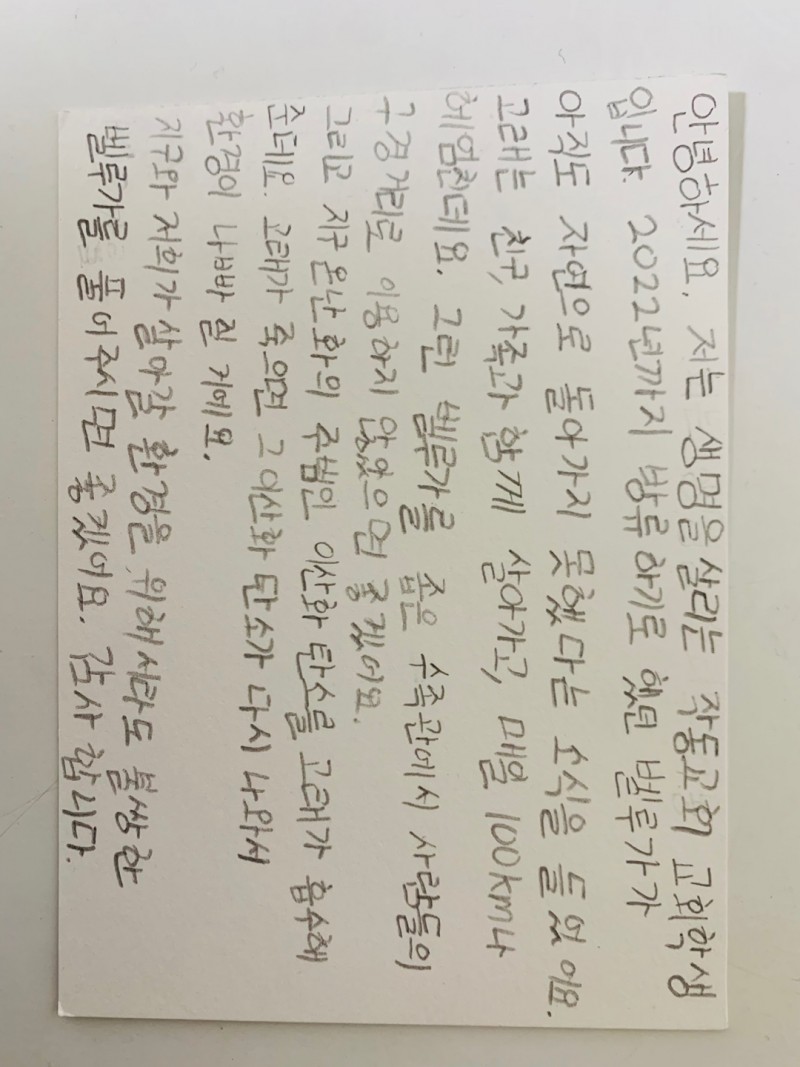 안녕하세요. 저는 생명을살리는 작동교회 교회학생
입니다. 2022년까지 방류하기로 했던 벨루가가
아직도 자연으로 돌아가지 못했다는 소식을 들었어요.
고래는 친구, 가족과 함께 살아가고, 매일 100km나
헤엄친데요. 그런 벨루가를 좁은 수족관에서 사람들의
구경거리로 이용하지 않았으면 좋겠어요.
그리고 지구온난화의 주범인 이산화탄소를 고래가 흡수해
준데요. 고래가 죽으면 그 이산화탄소가 다시 나와서
환경이 나빠질 거에요.
지구와 저희가 살아갈 환경을 위해서라도 불쌍한
벨루가를 풀어주시면 좋겠어요. 감사합니다.